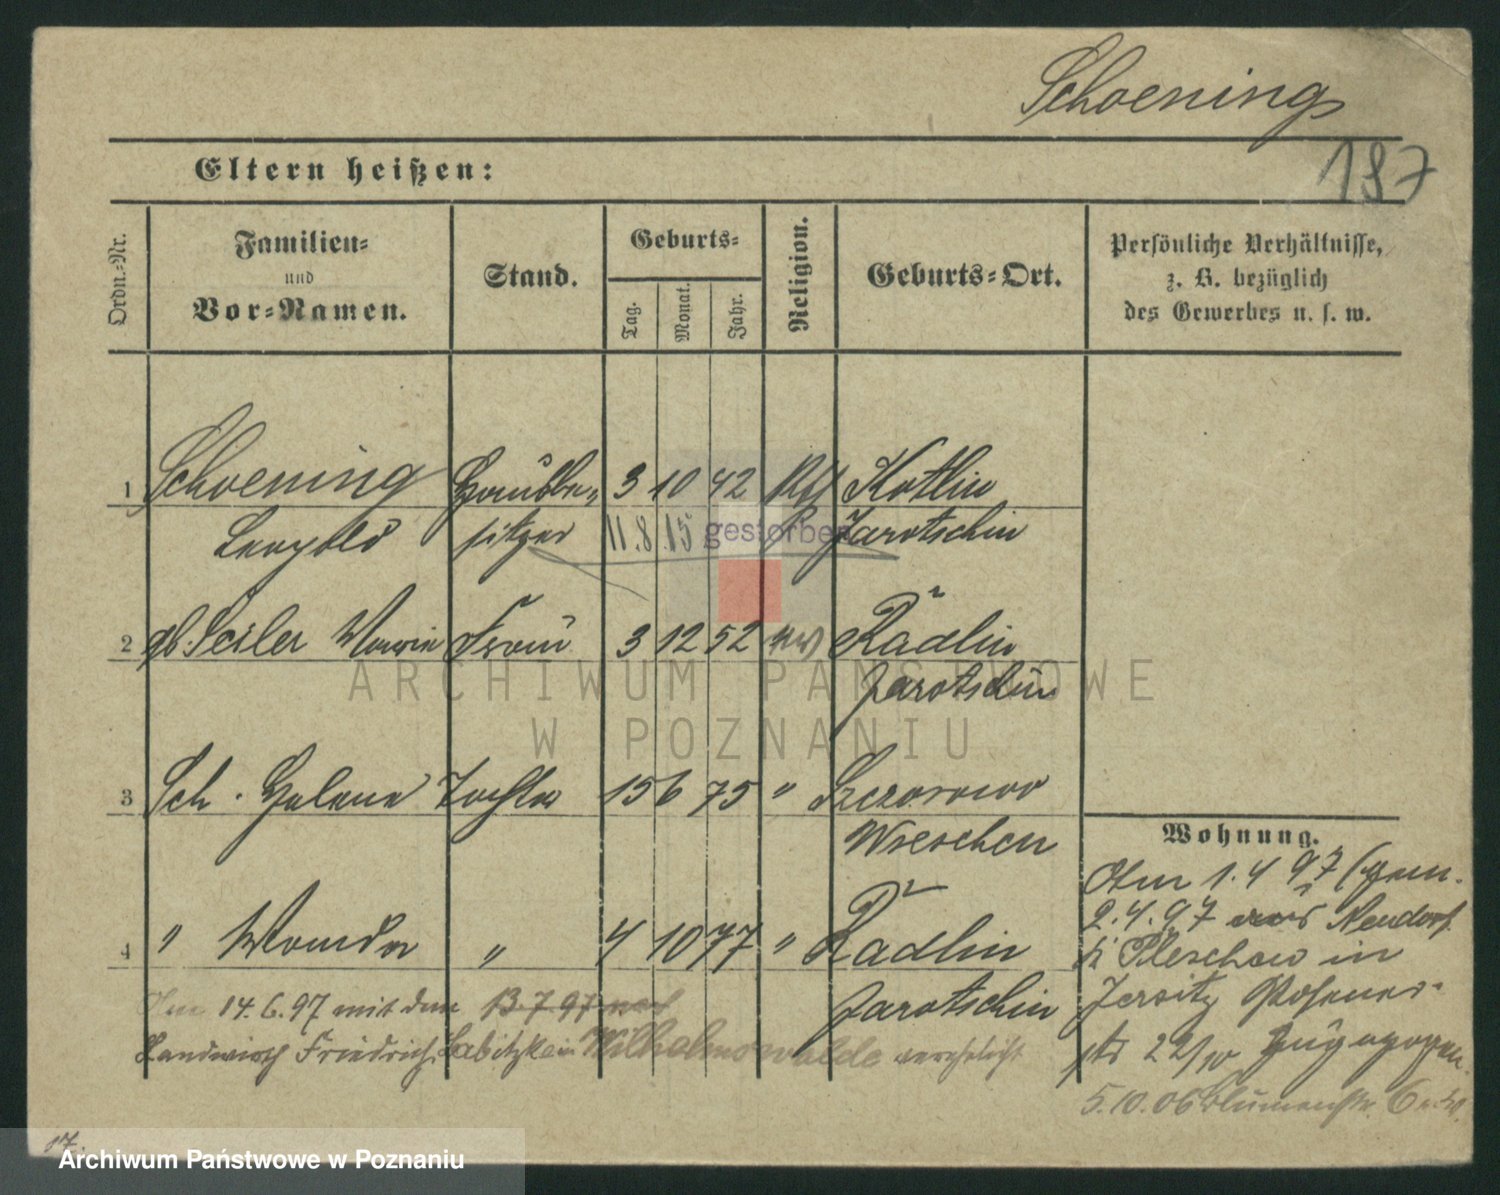 Schoening
187
Eltern heißen:
Ordn.-Nr.
Familien-
und
Vor-Namen.
Stand.
Geburts-
Tag.
Monat.
Jahr.
Religion.
Geburts-Ort.
Persönliche Verhältnisse,
z. B. bezüglich
des Gewerbes u. s. w.
1 Schoening Hausbe- 3 10 42 Kotlin
Leopold sitzer 11.8.15 gestorben Jarotschin
2 gb. Seiler Marie Frau 3 12 52 Radlin
Jarotschin
3 Sch. Helene Tochter 15 6 75 " Szczonowo
Wreschen
4 " Wanda " 4 10 77 " Radlin
Jarotschin
Am 14.6.97 mit dem 13.7.97 nach
Landwirth Friedrich Labitzke in Wilhelmswalde verehelicht
Wohnung.
Am 1.4 97 (gem.
2.4.97 aus Neudorf
b Pleschen in
Jersitz Posener-
str 22/10 zugezogen.
5.10.06 Blumenstr. 6
17.
ARCHIWUM PAŃSTWOWE
W POZNANIU
Archiwum Państwowe w Poznaniu